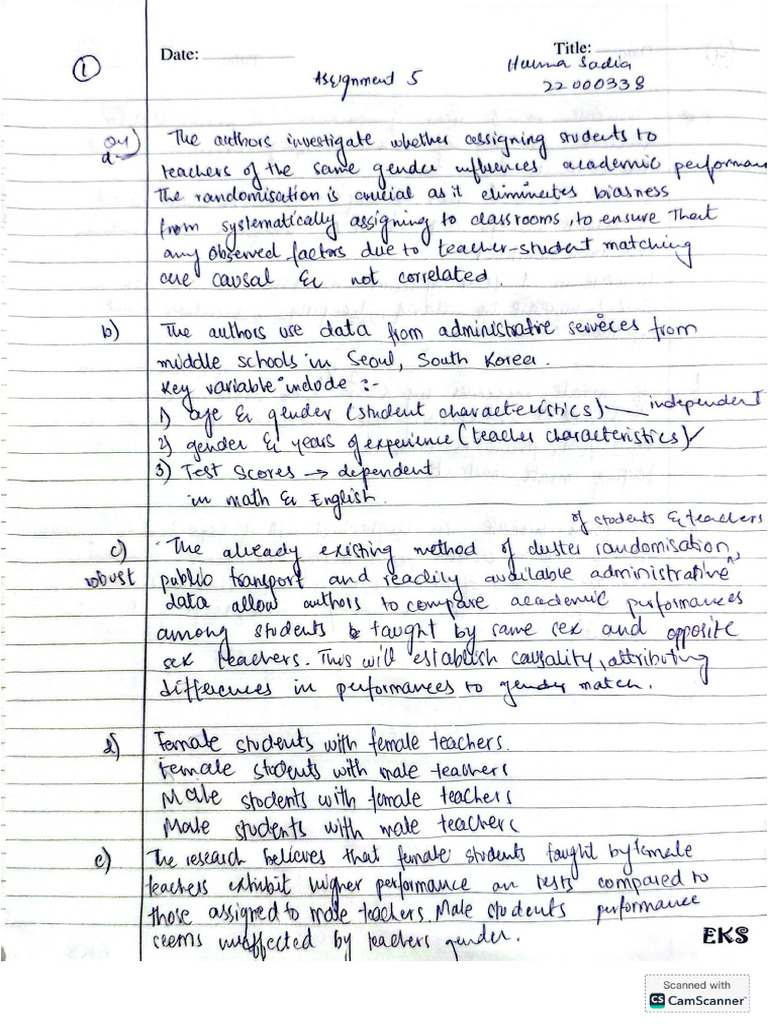 ①
Date:
Title:
Huma Sadia
Assignment 5
22000338
Q4)
a-
The authors investigate whether assigning students to
teachers of the same gender influences academic performan
The randomisation is crucial as it eliminates biasness
from systematically assigning to classrooms, to ensure that
any observed factors due to teacher-student matching
are causal & not correlated.
b)
The authors use data from administrative services from
middle schools in Seoul, South Korea.
Key variable include :-
1) age & gender (student characteristics) independent
2) gender & years of experience (teacher characteristics)
3) Test Scores → dependent
in math & English.
of students & teachers
c)
The already existing method of cluster randomisation,
robust public transport and readily available administrative
data allow authors to compare academic performances
among students taught by same sex and opposite
sex teachers. This will establish causality, attributing
differences in performances to gender match.
d)
Female students with female teachers.
Female students with male teachers
Male students with female teachers
Male students with male teachers
e)
The research believes that female students taught by female
teachers exhibit higher performance on tests compared to
those assigned to male teachers. Male students performance
seems unaffected by teachers gender.
EKS
Scanned with
CS CamScanner